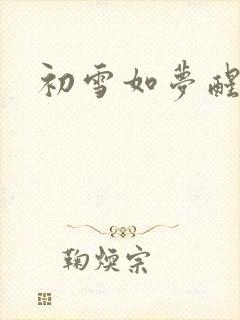 初雪如夢醒
鞠煐宗